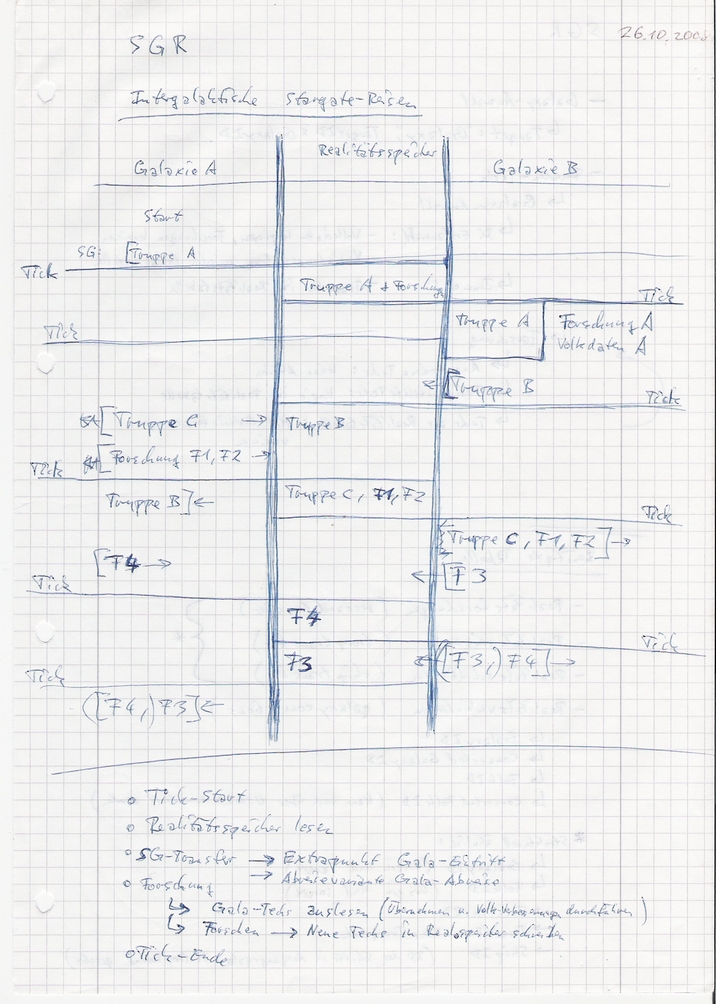 26.10.2008
SGR
Intergalaktische Stargate-Reisen
Realitätsspeicher
Galaxie A
Galaxie B
Start
SG: [Truppe A
Tick
Truppe A + Forschung
Tick
Truppe A
Forschung A
Volkdaten A
Tick
← [Truppe B
Tick
[Truppe C →
Truppe B
[Forschung F1, F2 →
Tick
Truppe B] ←
Truppe C, F1, F2
Tick
[Truppe C, F1, F2] →
[F4 →
← [F3
Tick
F4
Tick
F3
← ([F3,) F4] →
Tick
([F4,) F3] ←
o Tick-Start
o Realitätsspeicher lesen
o SG-Transfer → Extrapunkt Gala-Eintritt
→ Abreisevariante Gala-Abreise
o Forschung
↳ Gala-Techs auslesen (Übernehmen u. Volk-Verbesserungen durchführen)
↳ Forschen → Neue Techs in Realspeicher schreiben
o Tick-Ende